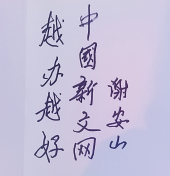 中國新文网
越办越好
谢安山